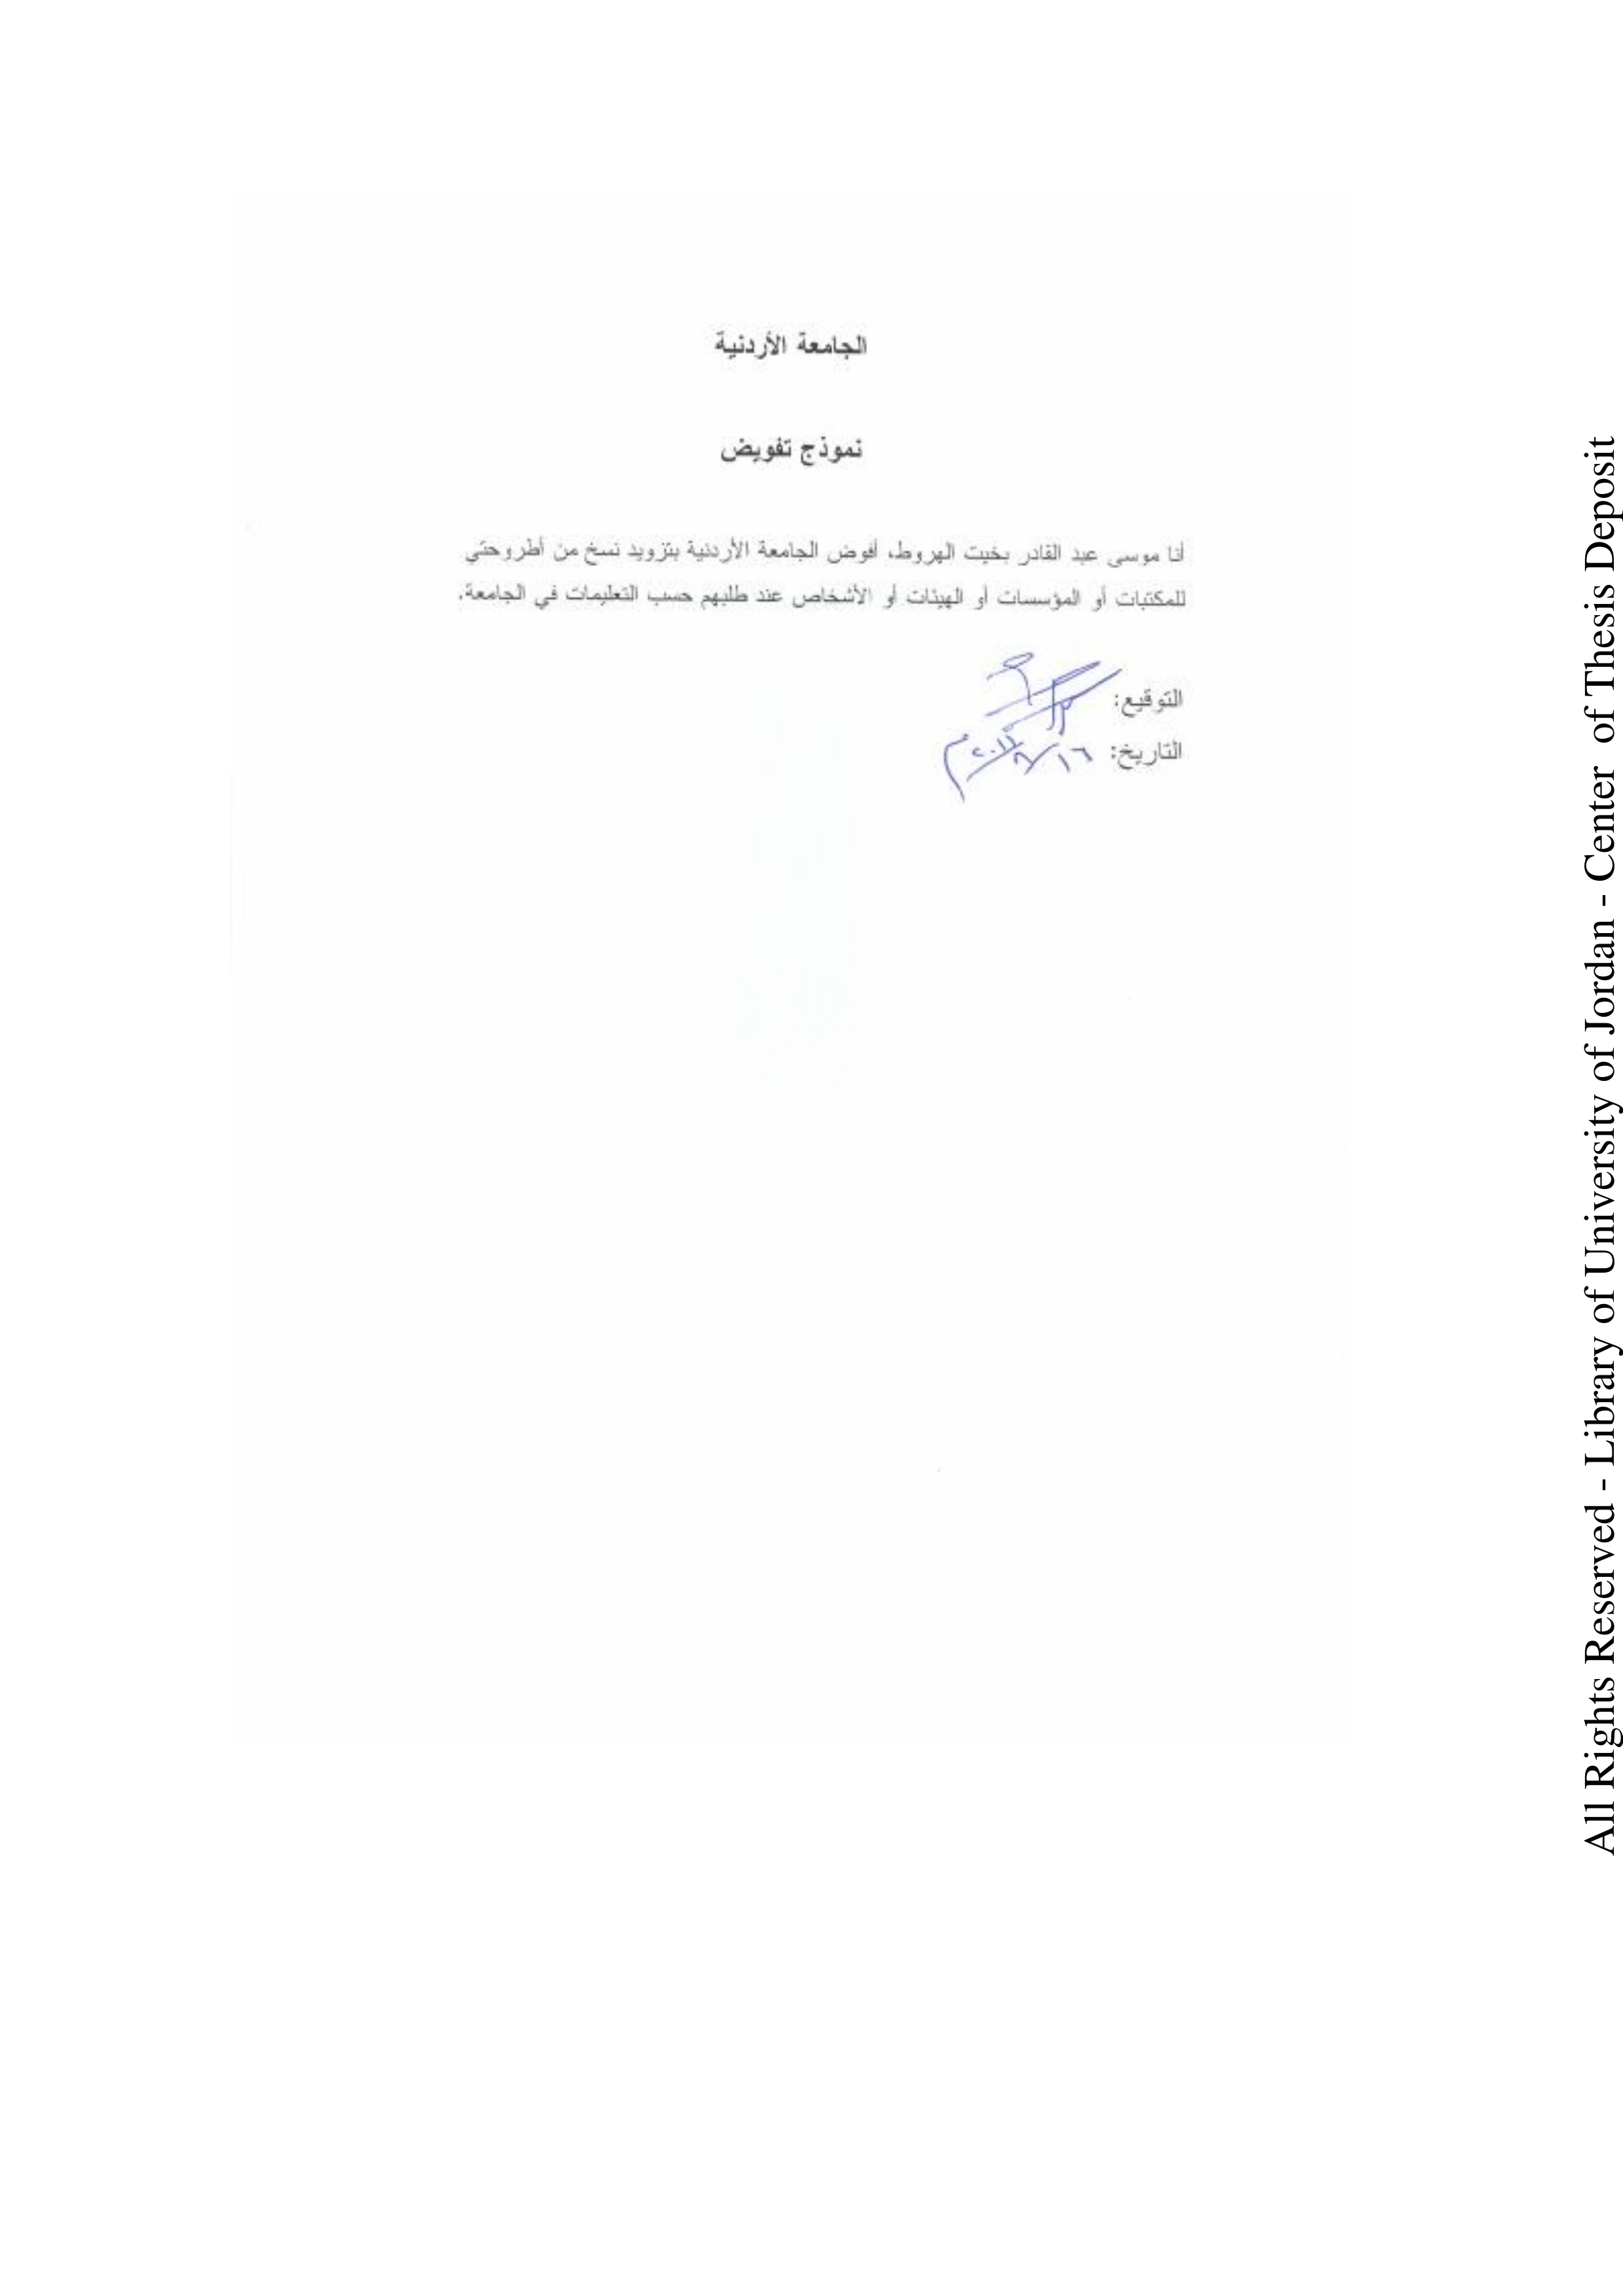 الجامعة الأردنية
نموذج تفويض
أنا موسى عبد القادر بخيت الهروط، أفوض الجامعة الأردنية بتزويد نسخ من أطروحتي
للمكتبات أو المؤسسات أو الهيئات أو الأشخاص عند طلبهم حسب التعليمات في الجامعة.
التوقيع:
التاريخ: ١٦/
All Rights Reserved - Library of University of Jordan - Center of Thesis Deposit